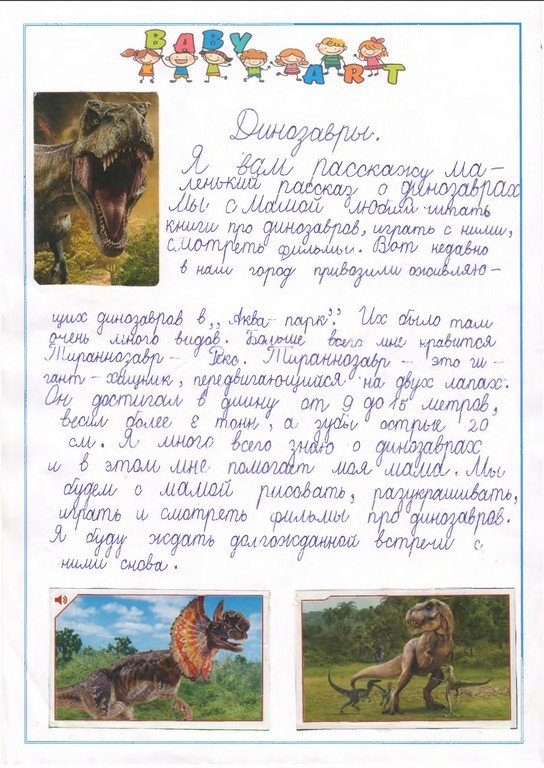 BABY
ART
Динозавры.
Я вам расскажу ма-
ленький рассказ о динозаврах
Мы с мамой любим читать
книги про динозавров, играть с ними,
смотреть фильмы. Вот недавно
в наш город привозили оживляю-
щих динозавров в ,, Аква-парк". Их было там
очень много видов. Больше всего мне нравится
Тираннозавр - Рекс. Тираннозавр - это ги-
гант - хищник, передвигающийся на двух лапах.
Он достигал в длину от 9 до 15 метров,
весил более 8 тонн, а зубы острые 20
см. Я много всего знаю о динозаврах
и в этом мне помогает моя мама. Мы
будем с мамой рисовать, разукрашивать,
играть и смотреть фильмы про динозавров.
Я буду ждать долгожданной встречи с
ними снова.